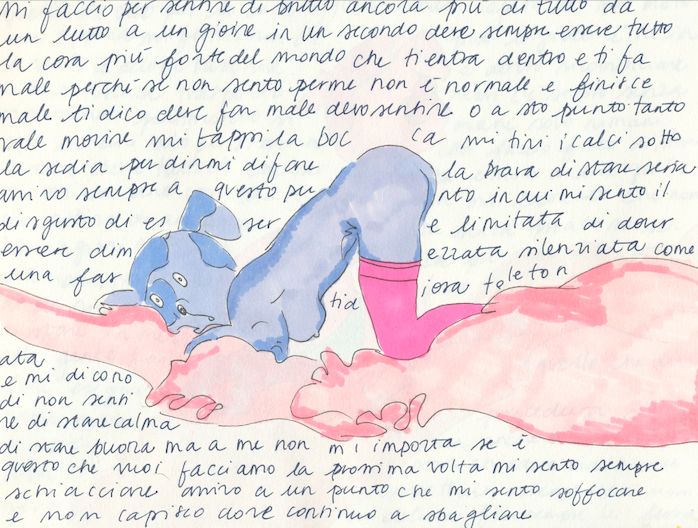 mi faccio per sentire di brutto ancora più di tutto da
un lutto a un gioire in un secondo deve sempre essere tutto
la cosa più forte del mondo che ti entra dentro e ti fa
male perché se non sento per me non è normale e finisce
male ti dico deve far male devo sentire o a sto punto tanto
vale morire mi tappi la boc ca mi tiri i calci sotto
la sedia per dirmi di fare la brava di stare seria
arrivo sempre a questo pu nto in cui mi sento il
disgusto di es ser e limitata di dover
essere dim ezzata silenziata come
una fas tid iosa telefon
ata
e mi dicono
di non senti
re di stare calma
di stare buona ma a me non mi importa se è
questo che vuoi facciamo la prossima volta mi sento sempre
schiacciare arrivo a un punto che mi sento soffocare
e non capisco dove continuo a sbagliare